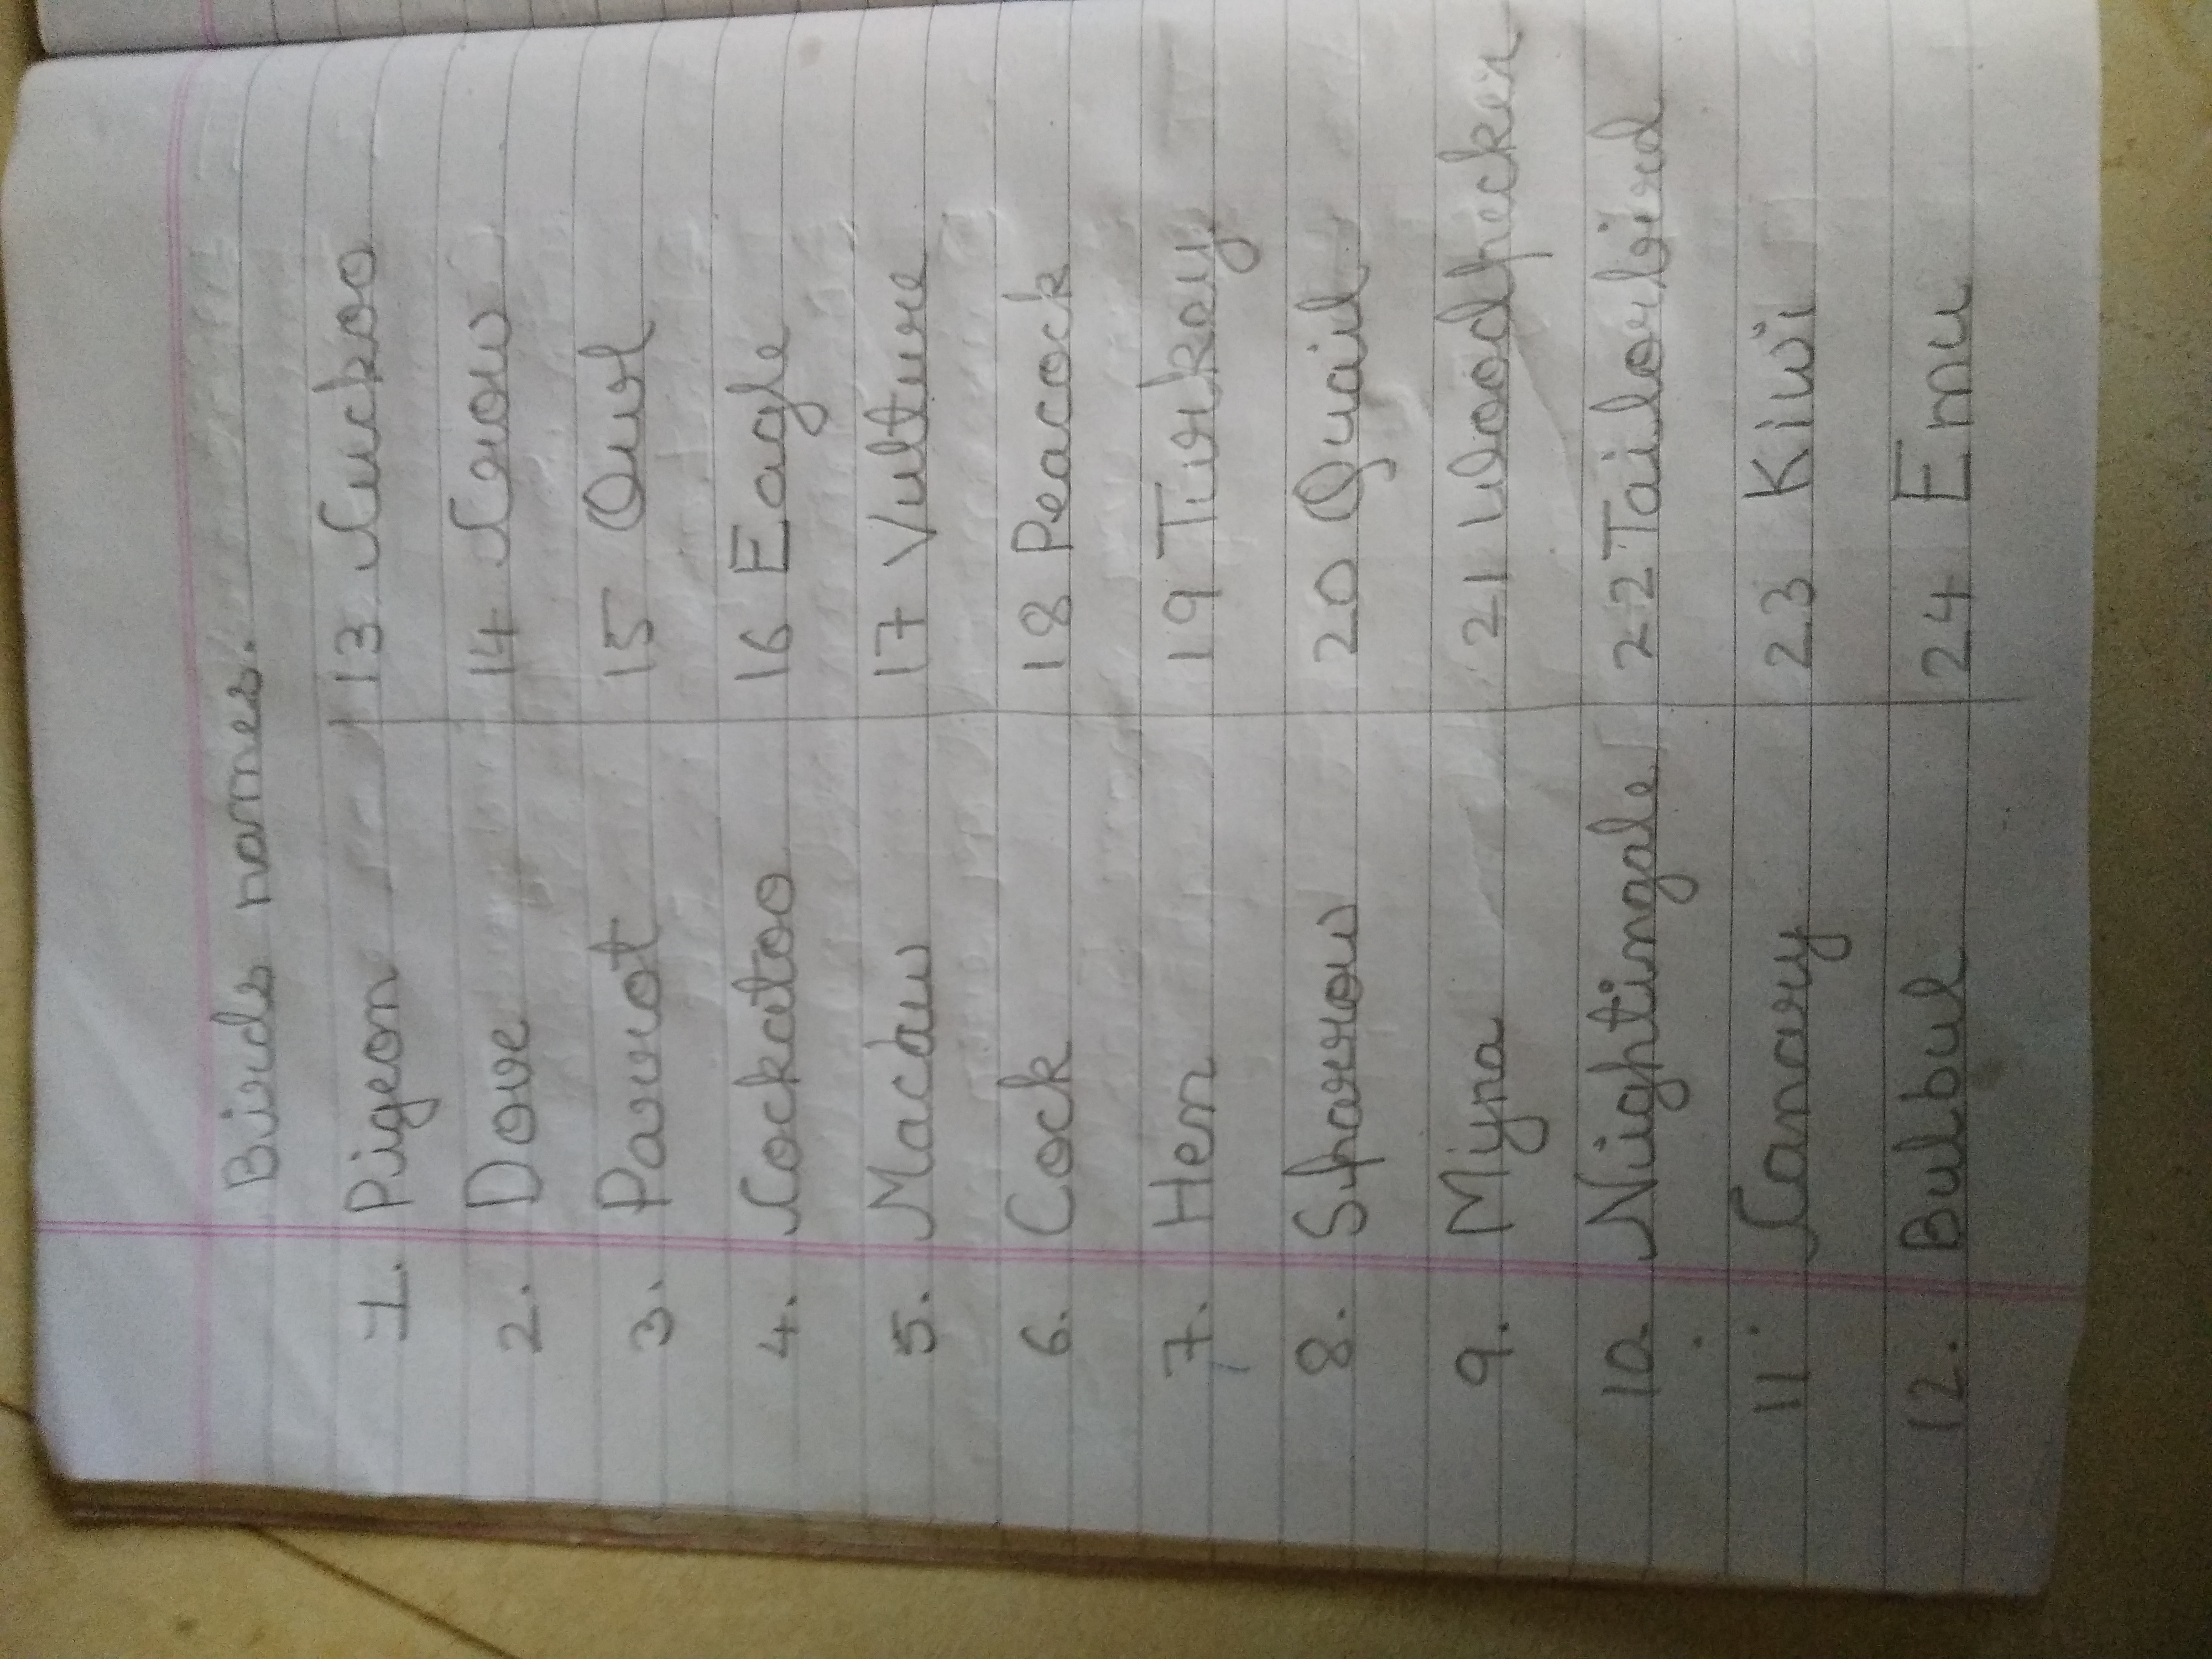 Birds names.
1. Pigeon
2. Dove
3. Parrot
4. Cockatoo
5. Macaw
6. Cock
7. Hen
8. Sparrow
9. Miyna
10. Nightingale
11. Canary
12. Bulbul
13 Cuckoo
14 Crow
15 Owl
16 Eagle
17 Vulture
18 Peacock
19 Turkey
20 Quail
21 Woodpecker
22 Tailorbird
23 Kiwi
24 Emu